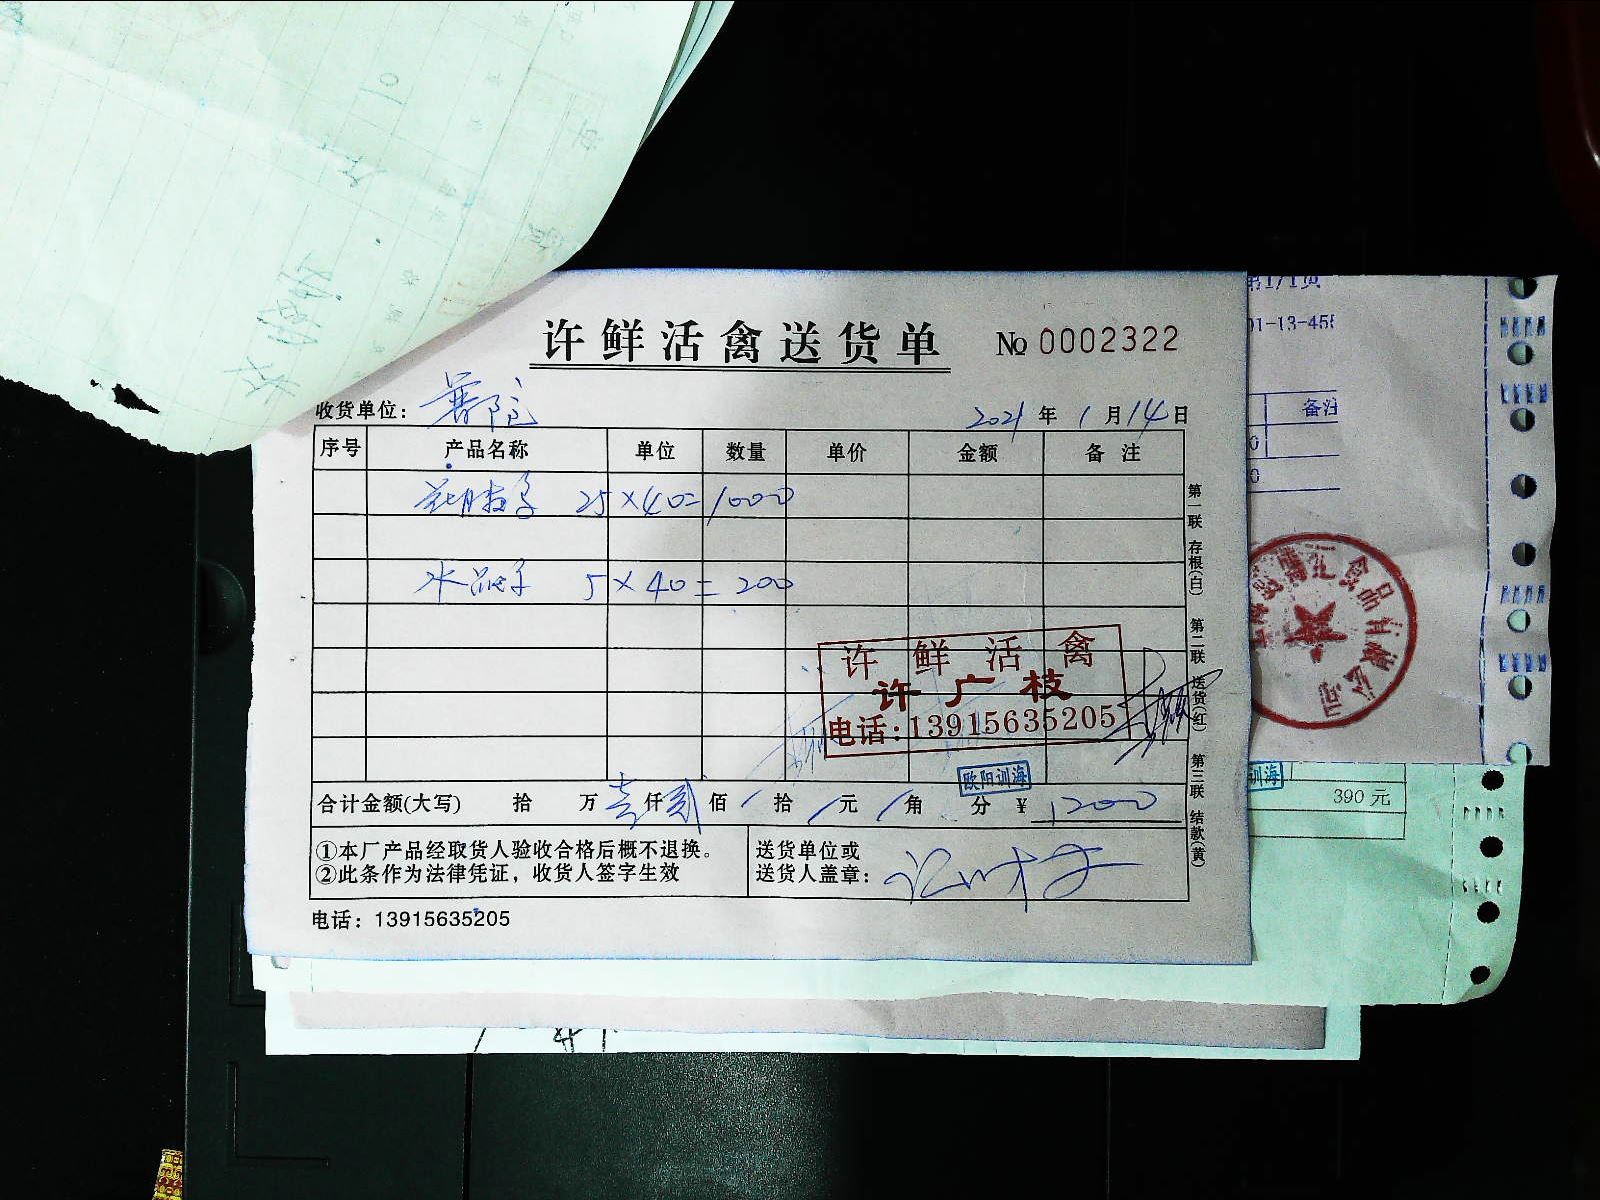 许鲜活禽送货单
№ 0002322
收货单位：
2021 年 1 月 14 日
序号 产品名称 单位 数量 单价 金额 备注
25 × 40 = 1000
5 × 40 = 200
许鲜活禽
许广枝
电话：13915635205
欧阳训海
合计金额(大写) 拾 万 壹 仟 贰 佰 / 拾 / 元 / 角 分 ¥ 1200
①本厂产品经取货人验收合格后概不退换。
②此条作为法律凭证，收货人签字生效
送货单位或
送货人盖章：
电话：13915635205
第一联 存根(白) 第二联 送货(红) 第三联 结款(黄)
第1/1页
01-13-45
备注
训海
390 元